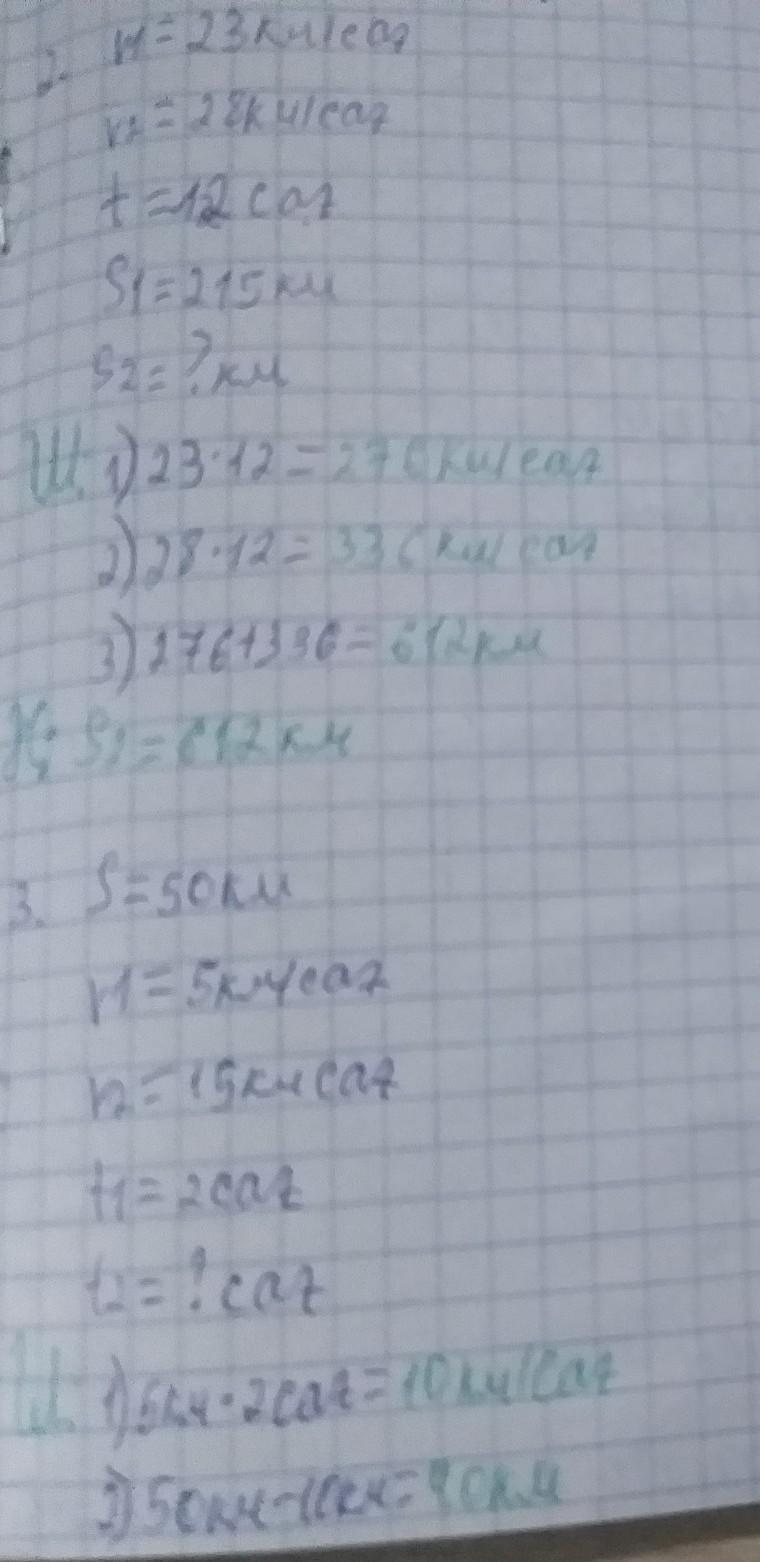 2. v1=23км/сағ
v2=28км/сағ
t=12сағ
S1=215км
S2=?км
Ш. 1) 23·12=276км/сағ
2) 28·12=336км/сағ
3) 276+336=612км
Ж: S2=612км
3. S=50км
v1=5км/сағ
v2=15км сағ
t1=2сағ
t2=?сағ
Ш. 1) 5км·2сағ=10км/сағ
2) 50км-10км=40км